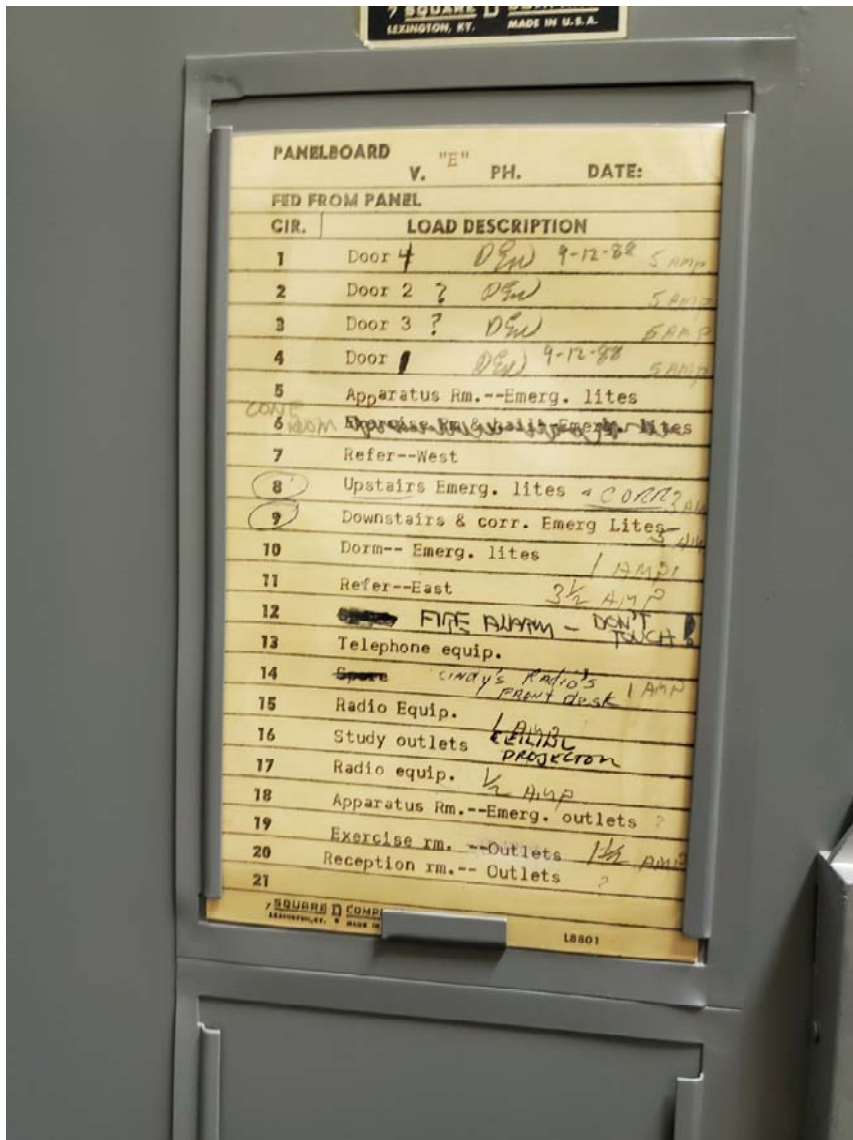 7 SQUARE D COMPANY
LEXINGTON, KY. MADE IN U.S.A.
PANELBOARD
V. "E" PH. DATE:
FED FROM PANEL
CIR. LOAD DESCRIPTION
1 Door 4 DEW 9-12-88 5 AMP
2 Door 2 ? DEW 5 AMP
3 Door 3 ? DEW 5 AMP
4 Door 1 DEW 9-12-88 5 AMP
5 Apparatus Rm.--Emerg. lites
CONF
6 ROOM Exercise Rm & Emerg. lites
7 Refer--West
8 Upstairs Emerg. lites & CORR
9 Downstairs & corr. Emerg Lites
10 Dorm-- Emerg. lites 1 AMP
11 Refer--East 3½ AMP
12 FIRE ALARM - DON'T
TOUCH!
13 Telephone equip.
14 Spare CINDY'S RADIO'S 1 AMP
FRONT desk
15 Radio Equip. 1 AMP
16 Study outlets CEILING
PROJECTOR
17 Radio equip. ½ AMP
18 Apparatus Rm.--Emerg. outlets ?
19 Exercise rm. --Outlets 1½ AMP
20 Reception rm.-- Outlets ?
21
7 SQUARE D
LEXINGTON, KY. MADE IN
L8801